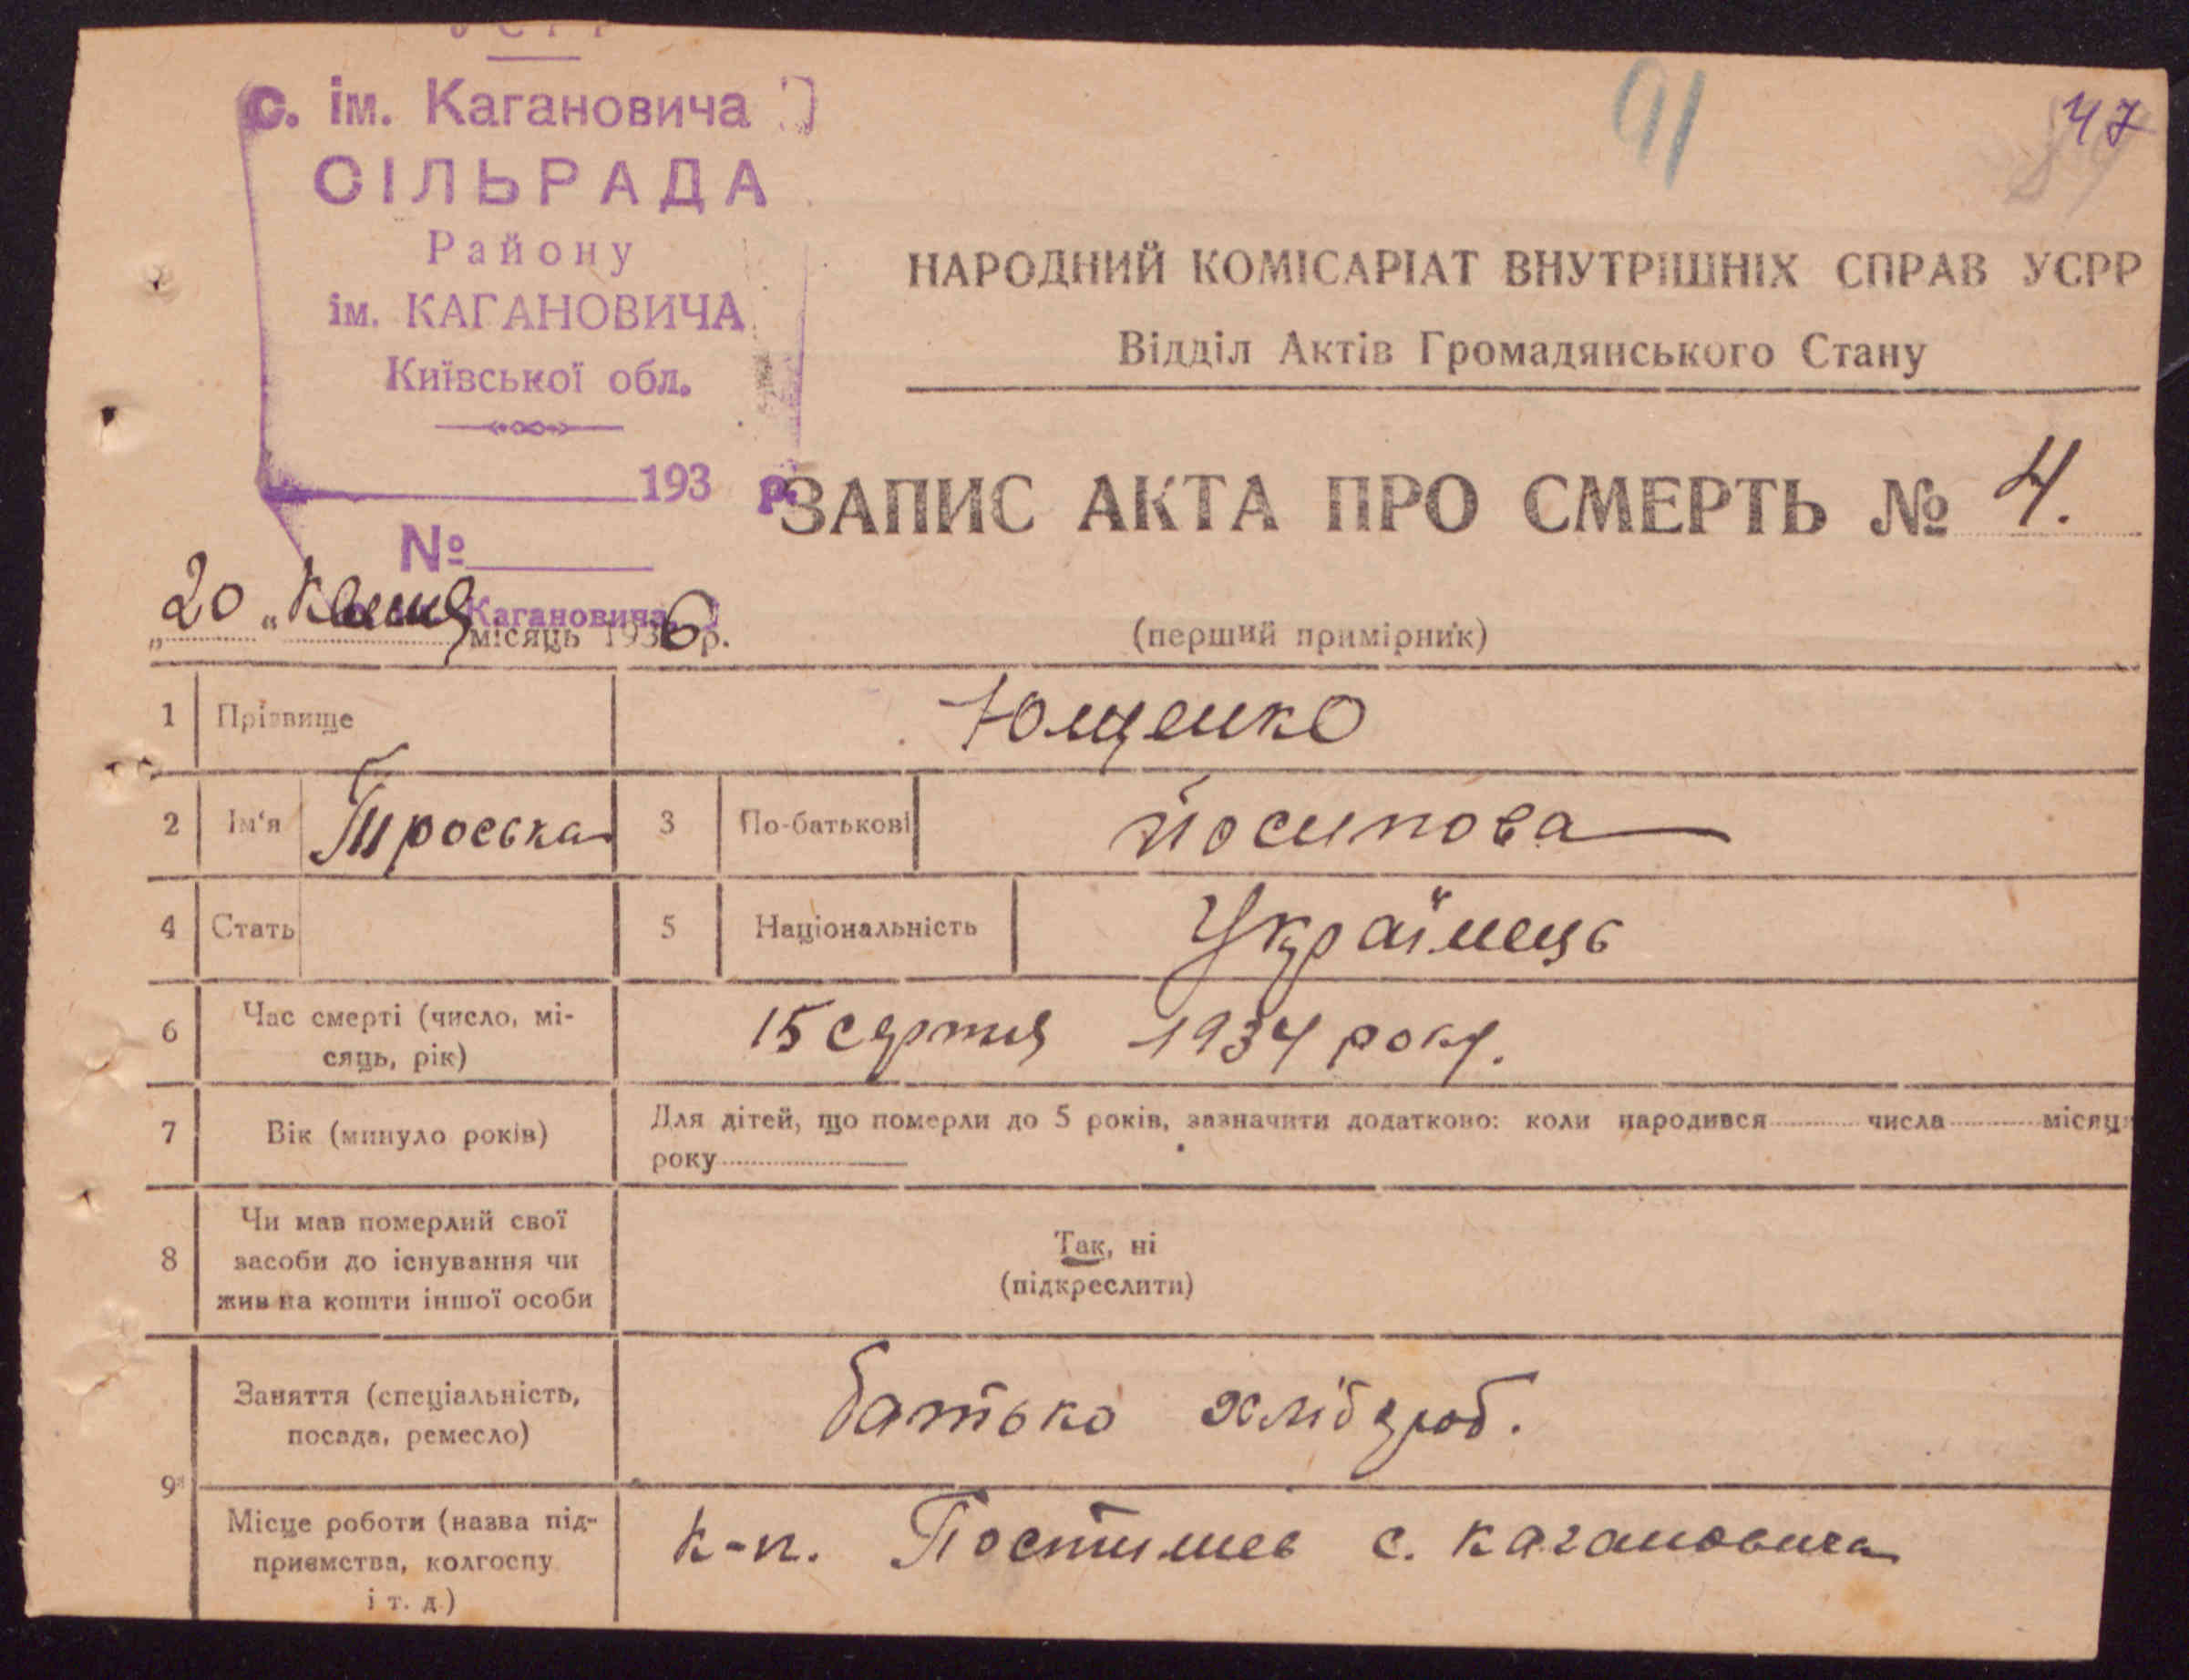 УСРР
с. ім. Кагановича
СІЛЬРАДА
Району
ім. КАГАНОВИЧА
Київської обл.
193 р.
№
Кагановича
91
47
89
НАРОДНИЙ КОМІСАРІАТ ВНУТРІШНІХ СПРАВ УСРР
Відділ Актів Громадянського Стану
ЗАПИС АКТА ПРО СМЕРТЬ № 4.
„20“ Квітня місяць 1936 р.
(перший примірник)
1 Прізвище Ющенко
2 Ім'я 3 По-батькові Йосипова
4 Стать 5 Національність Українець
6 Час смерті (число, мі-
сяць, рік) 15 серпня 1934 року.
7 Вік (минуло років) Для дітей, що померли до 5 років, зазначити додатково: коли народився числа місяця
року
8 Чи мав померлий свої
засоби до існування чи
жив на кошти іншої особи
Так, ні
(підкреслити)
9 Заняття (спеціальність,
посада, ремесло) батько хлібороб.
Місце роботи (назва під-
приємства, колгоспу
і т. д.) к-п. Постишев с. Кагановича